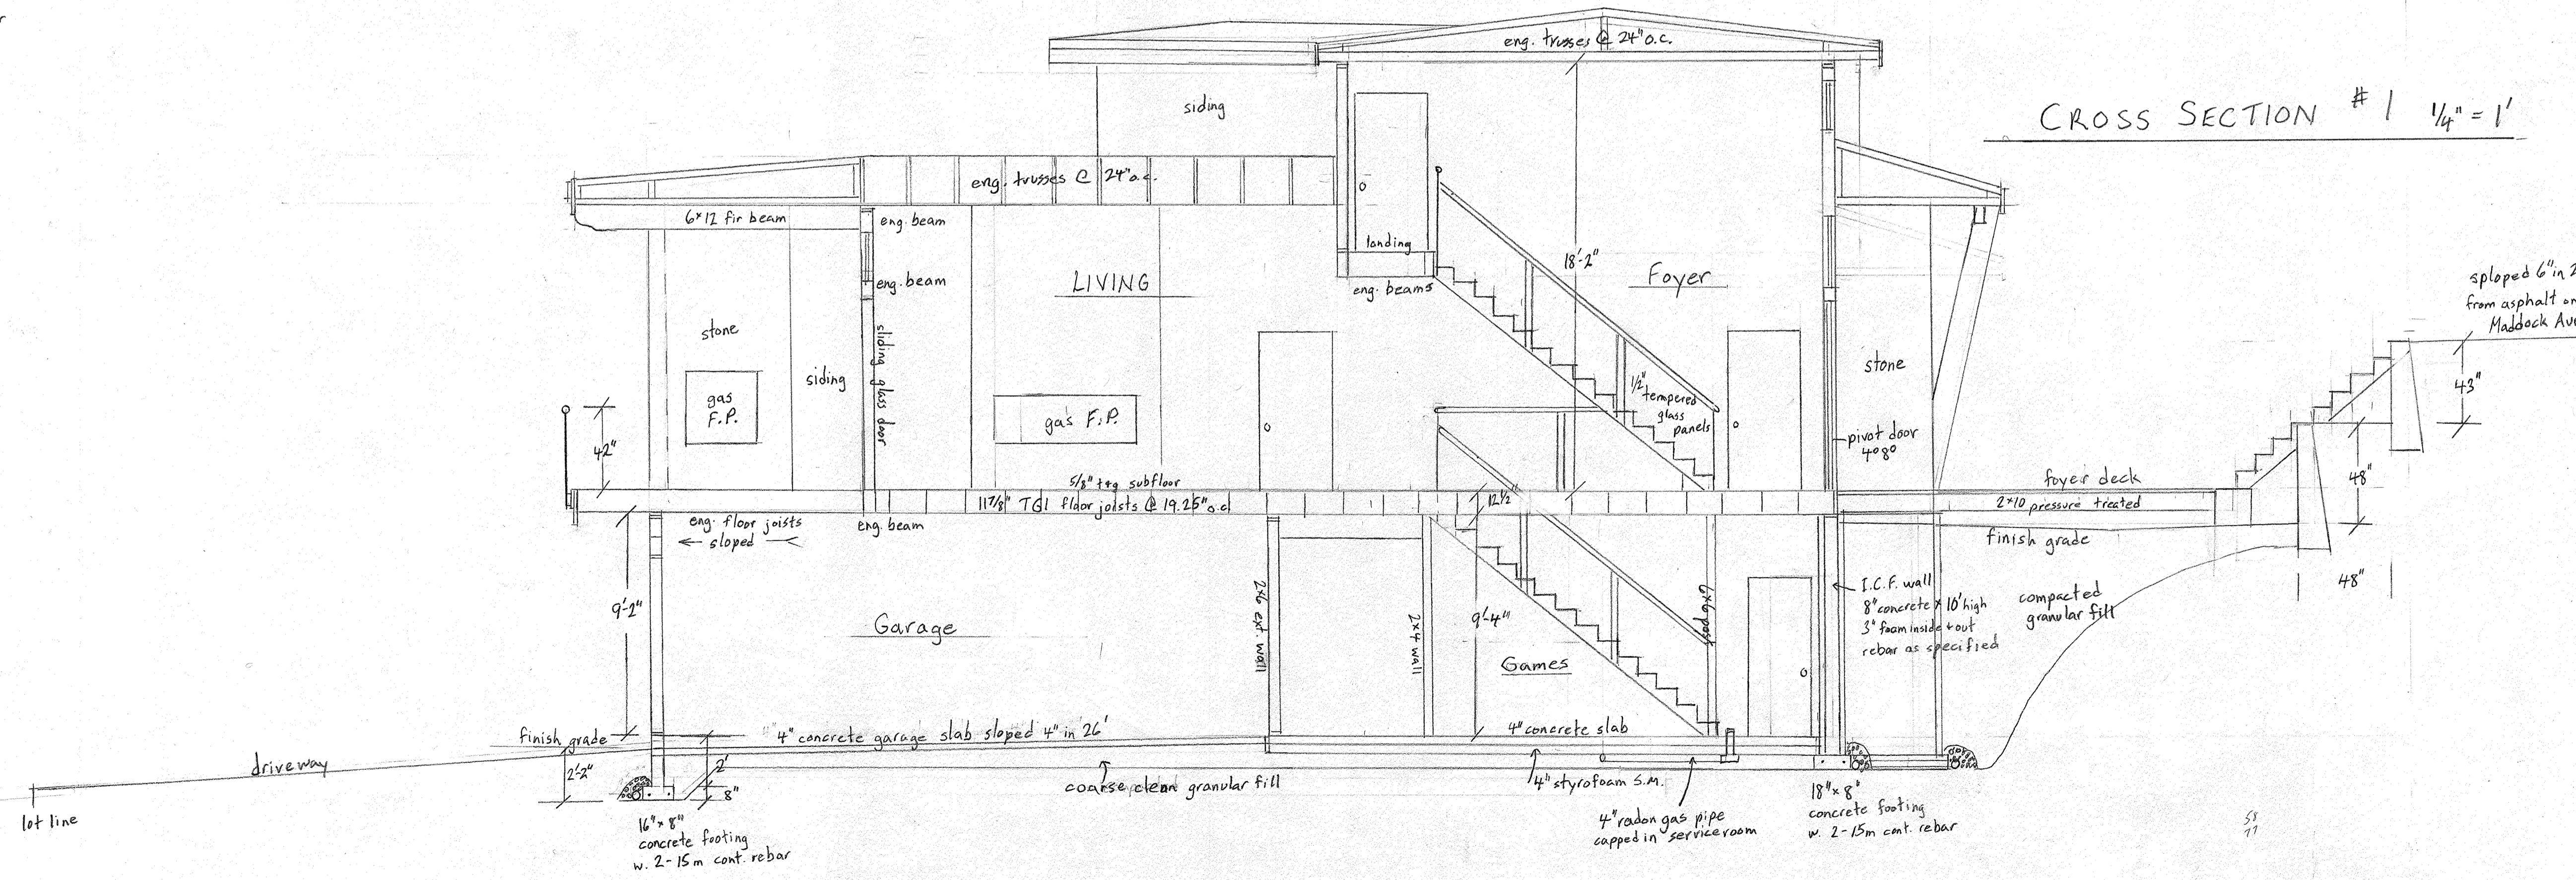 eng. trusses @ 24" o.c.
CROSS SECTION #1 1/4" = 1'
siding
eng. trusses @ 24" o.c.
6x12 fir beam
eng. beam
eng. beam
landing
eng. beams
18'-2"
LIVING
Foyer
sploped 6" in
from asphalt
Maddock
stone
siding
sliding glass door
gas
F.P.
gas F.P.
1/2"
tempered
glass
panels
stone
pivot door
4080
43"
48"
42"
5/8" t+g subfloor
11 7/8" TGI floor joists @ 19.25" o.c.
12 1/2"
foyer deck
2x10 pressure treated
finish grade
eng. floor joists
← sloped
eng. beam
9'-2"
Garage
2x6 ext. wall
2x4 wall
9'-4"
Games
6x6 post
I.C.F. wall
8" concrete x 10' high
3" foam inside + out
rebar as specified
compacted
granular fill
48"
finish grade
4" concrete garage slab sloped 4" in 26'
4" concrete slab
driveway
2'-2"
2'
8"
coarse clean granular fill
4" styrofoam S.M.
lot line
16" x 8"
concrete footing
w. 2-15m cont. rebar
4" radon gas pipe
capped in service room
18" x 8"
concrete footing
w. 2-15m cont. rebar